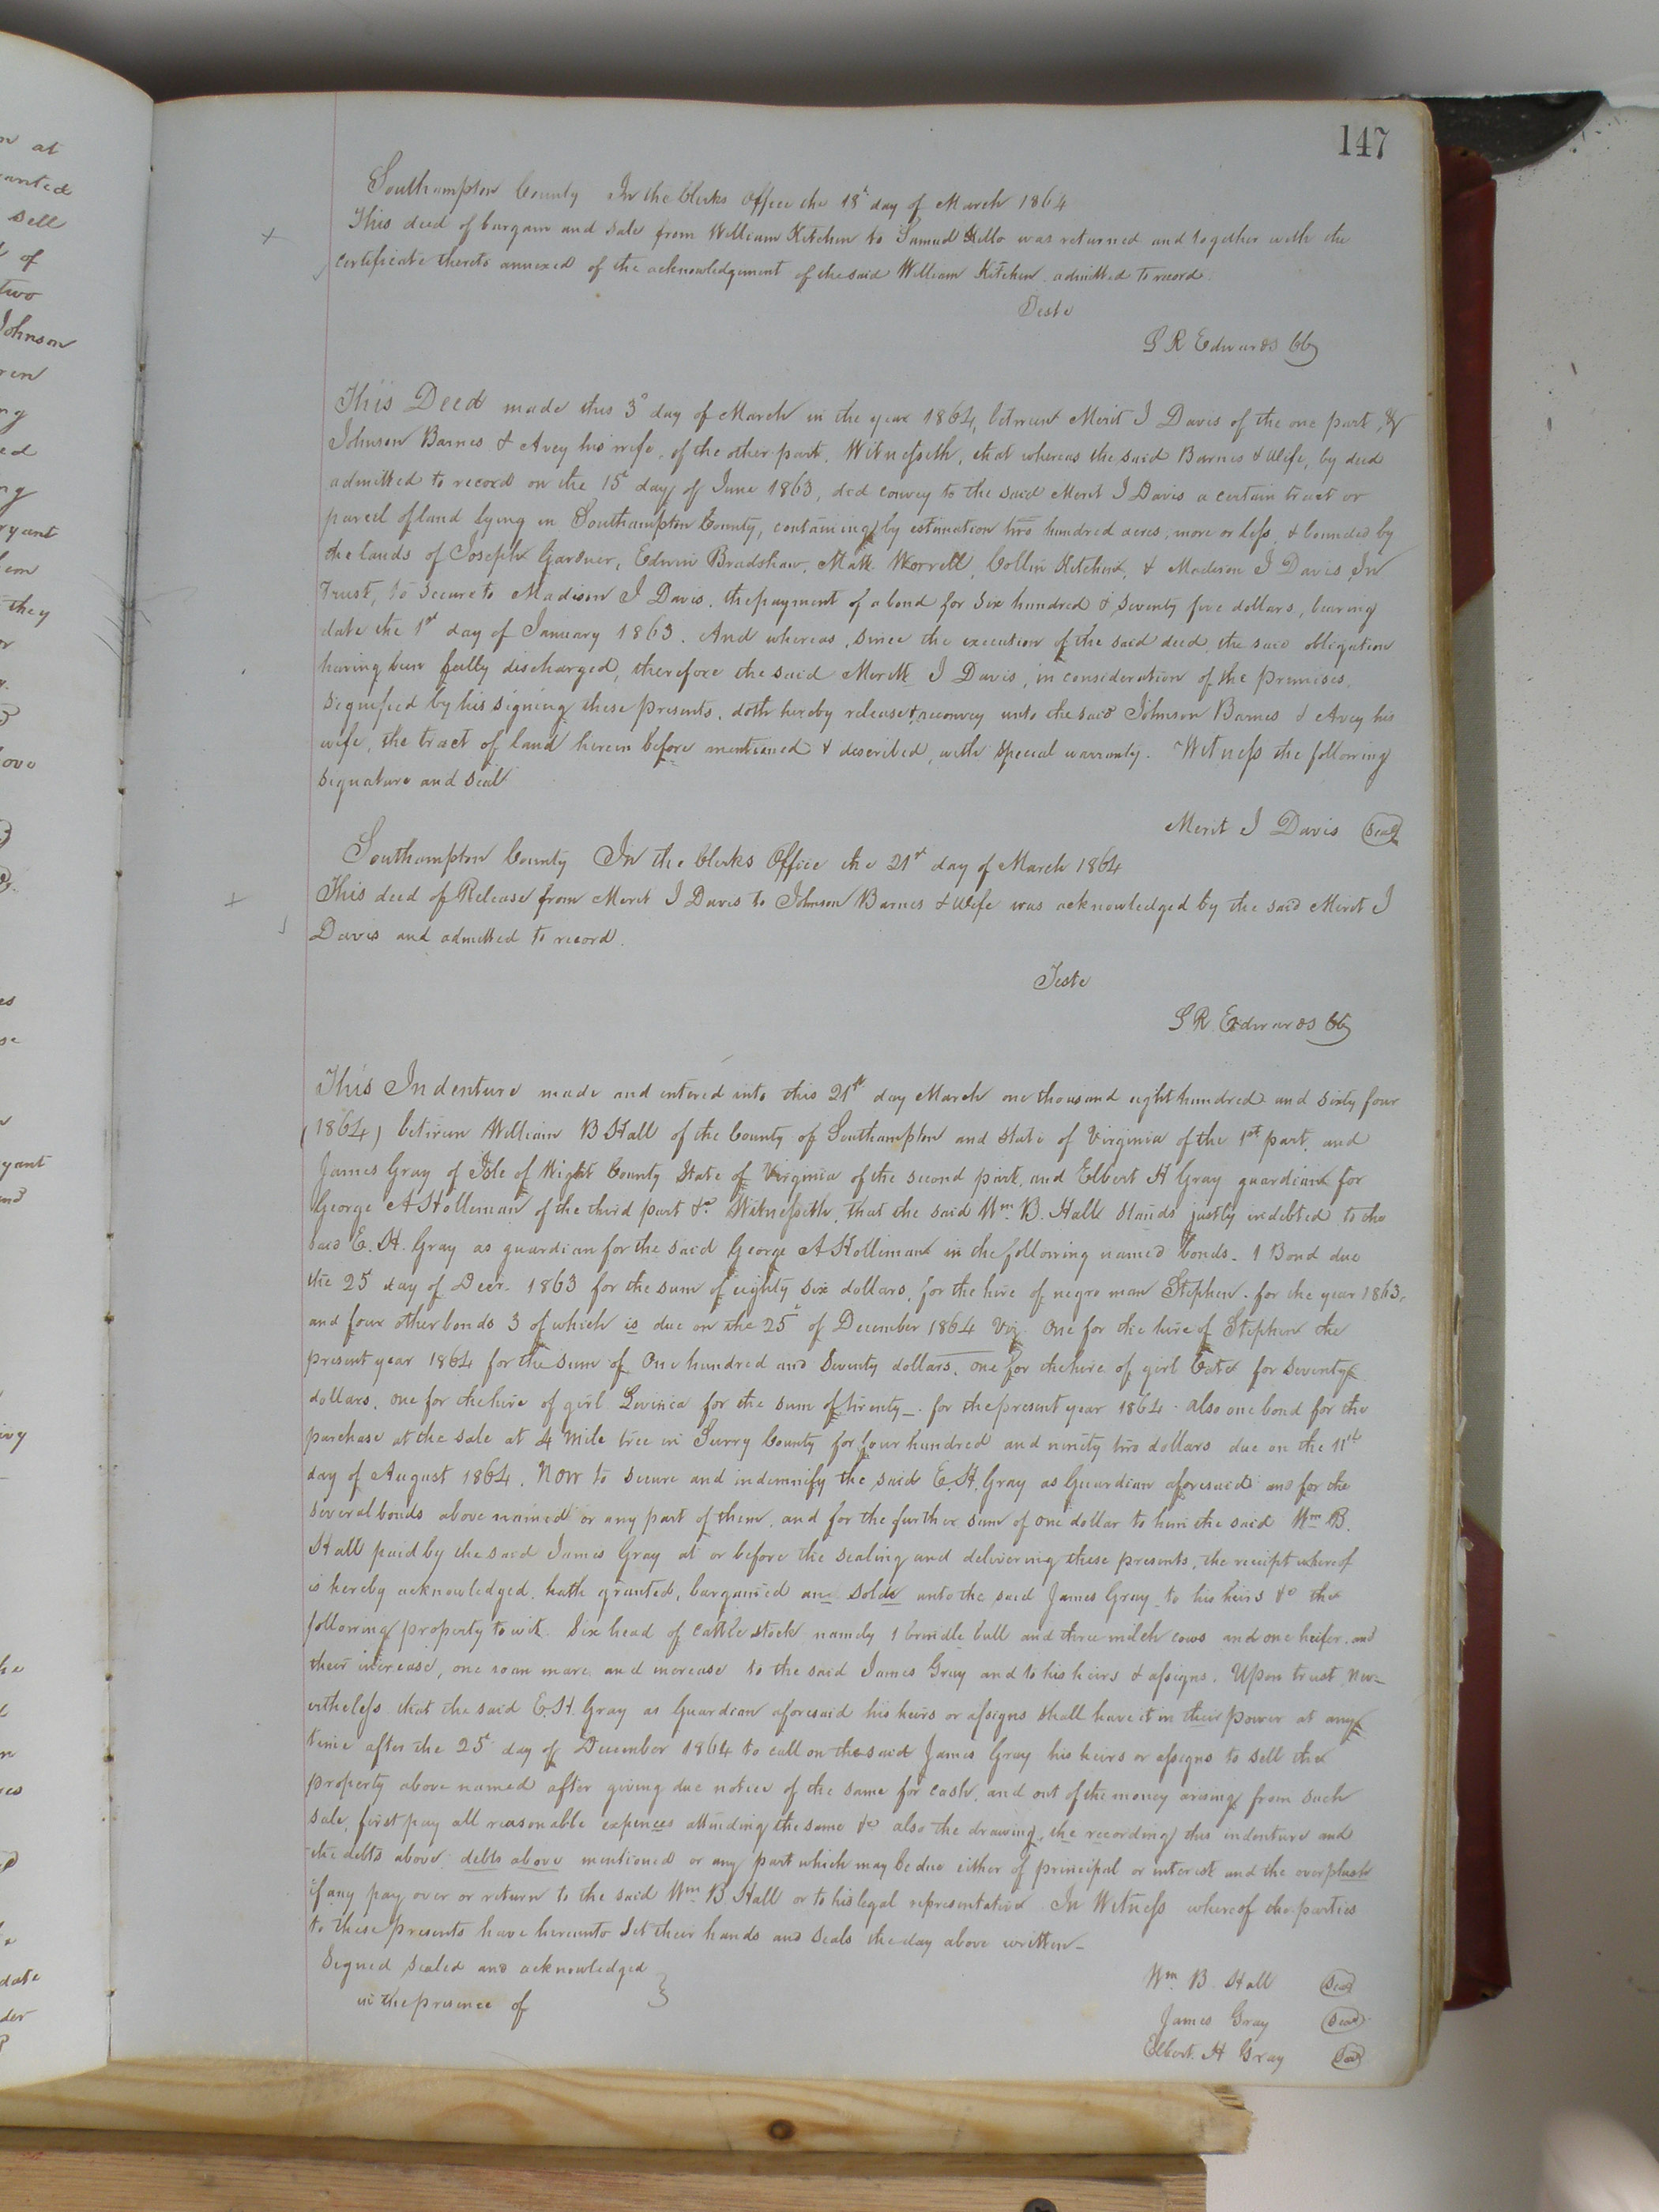 147
Southampton County In the Clerks Office the 18th day of March 1864
This deed of bargain and sale from William Kitchen to Samuel Kello was returned and together with the
certificate thereto annexed of the acknowledgement of the said William Kitchen admitted to record.
Teste
L R Edwards CC
This Deed made this 3d day of March in the year 1864, between Merit J Davis of the one part, &
Johnson Barnes & Avey his wife, of the other part. Witnesseth, that whereas the said Barnes & Wife, by deed
admitted to record on the 15th day of June 1863, did convey to the said Merit J Davis a certain tract or
parcel of land lying in Southampton County, containing by estimation two hundred acres, more or less, & bounded by
the lands of Joseph Gardner, Edwin Bradshaw, Matt Worrell, Collin Kitchen, & Madison J Davis, In
Trust, to secure to Madison J Davis, the payment of a bond for six hundred & seventy five dollars, bearing
date the 1st day of January 1863. And whereas, since the execution of the said deed, the said obligation
having been fully discharged, therefore the said Meritt J Davis, in consideration of the premises,
signified by his signing these presents, doth hereby release & reconvey unto the said Johnson Barnes & Avey his
wife, the tract of land herein before mentioned & described, with special warranty. Witness the following
signature and seal
Merit J Davis Seal
Southampton County In the Clerks Office the 21st day of March 1864
This deed of Release from Merit J Davis to Johnson Barnes & Wife was acknowledged by the said Merit J
Davis and admitted to record.
Teste
L R Edwards CC
This Indenture made and entered into this 21st day March one thousand eight hundred and sixty four
(1864) between William B Hall of the County of Southampton and State of Virginia of the 1st part, and
James Gray of Isle of Wight County State of Virginia of the second part, and Elbert H Gray guardian for
George A Holleman of the third part &c Witnesseth, that the said Wm B. Hall stands justly indebted to the
said E. H. Gray as guardian for the said George A Holliman in the following named bonds - 1 Bond due
the 25 day of Decr. 1863 for the sum of eighty six dollars, for the hire of negro man Stephen. for the year 1863,
and four other bonds 3 of which is due on the 25th of December 1864 Viz One for the hire of Stephen the
present year 1864 for the sum of One hundred and Seventy dollars, one for the hire of girl for Seventy
dollars, one for the hire of girl Levinia for the sum of twenty -. for the present year 1864. also one bond for the
purchase at the sale at 4 Mile tree in Surry County for four hundred and ninety two dollars due on the 11th
day of August 1864. Now to secure and indemnify the said E. H. Gray as Guardian aforesaid and for the
several bonds above named or any part of them, and for the further sum of one dollar to him the said Wm B.
Hall paid by the said James Gray at or before the sealing and delivering these presents, the receipt whereof
is hereby acknowledged, hath granted, bargained and sold unto the said James Gray to his heirs &c the
following property to wit. Six head of cattle stock namely 1 brindle bull and three milch cows and one heifer and
their increase, one roan mare and increase to the said James Gray and to his heirs & assigns. Upon trust Nev-
ertheless that the said E. H. Gray as Guardian aforesaid his heirs or assigns shall have it in their power at any
time after the 25th day of December 1864 to call on the said James Gray his heirs or assigns to sell the
property above named after giving due notice of the same for cash, and out of the money arising from such
sale, first pay all reasonable expences attending the same &c also the drawing, the recording this indenture and
the debts above debts above mentioned or any part which may be due either of principal or interest and the overplush
if any pay over or return to the said Wm B Hall or to his legal representative In Witness whereof the parties
to these presents have hereunto set their hands and seals the day above written -
Signed sealed and acknowledged
in the presence of
Wm. B. Hall Seal
James Gray Seal
Elbert. H Gray Seal